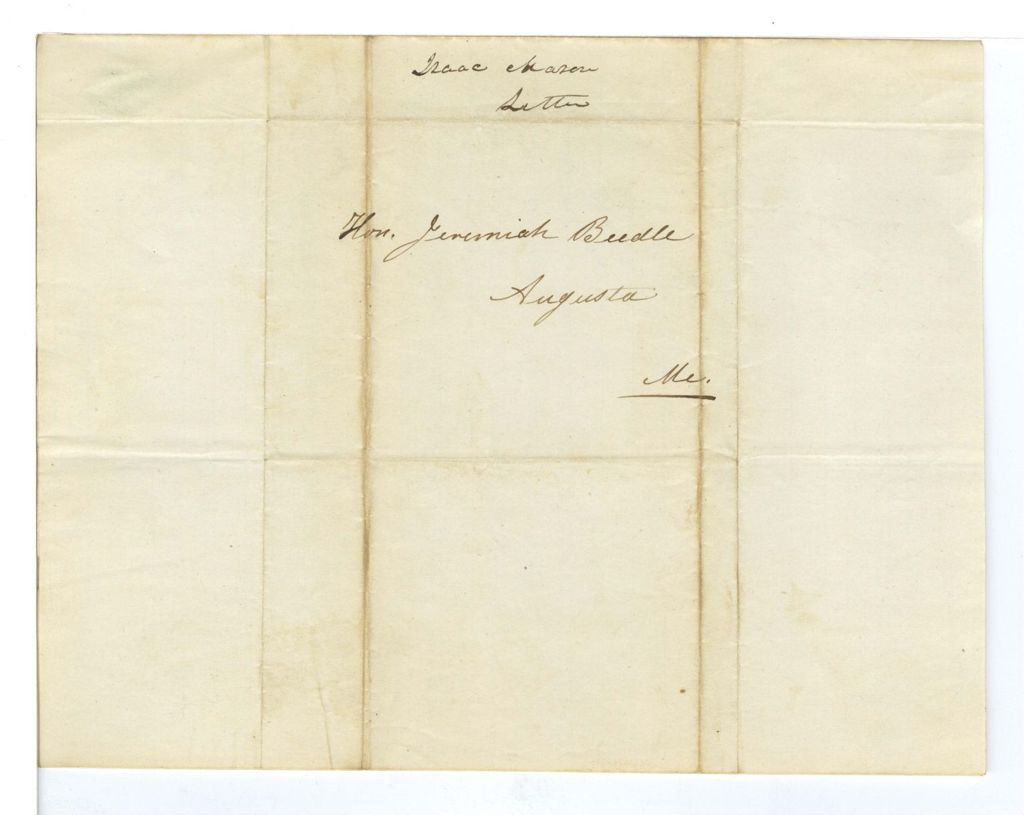 Isaac Mason
Letter
Hon. Jeremiah Beedle
Augusta
Me.